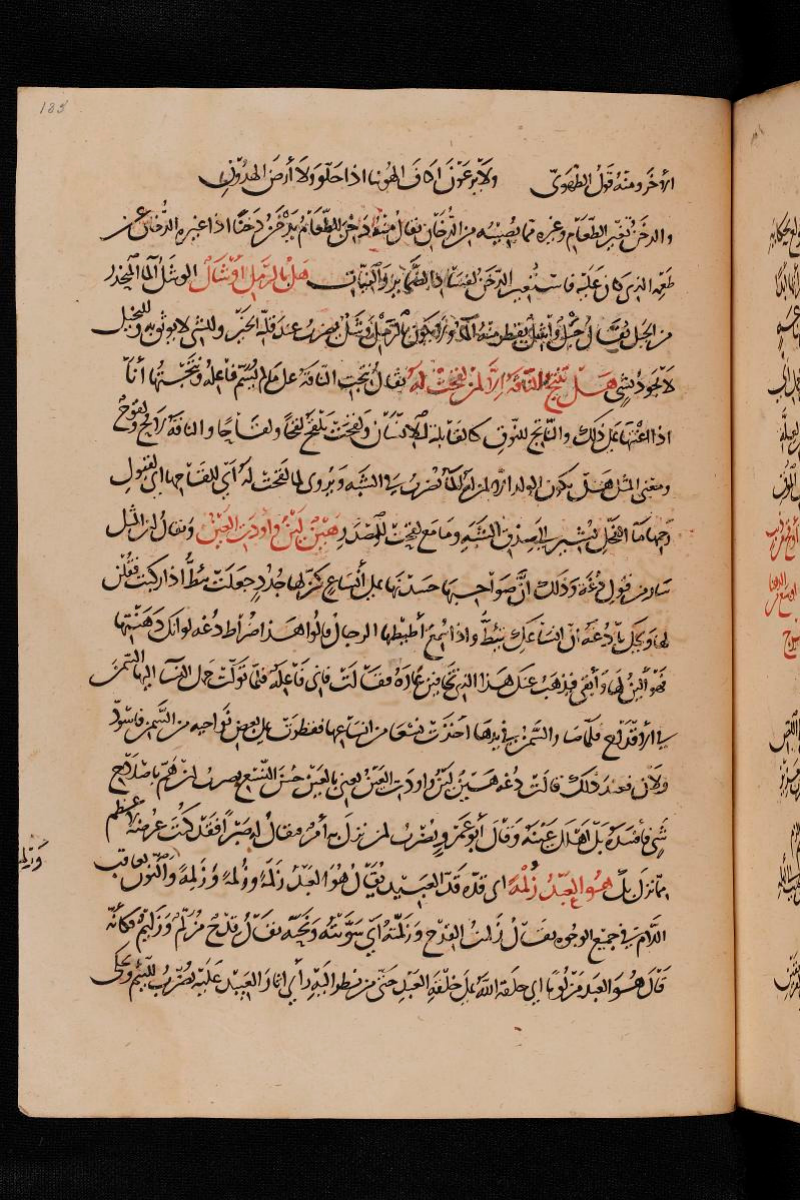 185
الأخر ومنه قول الطهوي ولا يرعون أكناف الهوينا اذا حلوا ولا أرض الهدون
والدخن تغير الطعام وغيره مما يصيبه من الدخان يقال منه دخن الطعام يدخن دخنا اذا غيره الدخان عن
طعمه الذي كان عليه فاستعير الدخن لفساد الضماير والنيات هل بالرمل اوشال الوشل الماء المنحدر
من الجبل يقال جبل واشل يقطر منه الماء ولا يكون بالرمل وشل يضرب عند قلة الخير وللشي لا يوثق به وللبخيل
لا يجود بشي هل تنتج الناقة الا لمن لقحت له يقال نتجت الناقة على ما لم يسم فاعله ونتجتها أنا
اذا اعنتها على ذلك والناتج للنوق كالقابلة للانسان ولقحت تلقح لقحا ولقاحا والناقة لاقح ولقوح
ومعنى المثل هل يكون الولد الا لمن له الماء يضرب في الشبه ويروى لما لقحت له أي للقاحها اي لقبول
رحمها ماء الفحل يشير الى صدق الشبه وما مع لقحت للمصدر هين لين واودت العين ويقال ان المثل
سار من قول دغة وذلك ان صواحبها حسدنها على أنساع كن لها جدد جعلت تئط اذا ركبت فقلن
لها ويحك يا دغة ان انساعك تئط واذا سمع أطيطها الرجال قالوا هذا ضراط دغه لو انك دهنتها
فهو ألين لها وأبقى فيذهب عنك هذا الذي تخافين عاره فقالت فاني فاعله فلما نزلت حمل النساء اليها السمن
في الاقداح فلما صار السمن في يدها اخذت نسعا من انساعها فقطرت على بعض نواحيه من السمن فاسود
ولان فعند ذلك قالت دغه هين لين واودت العين يعني بالعين حسن النسع يضرب لمن هم باصلاح
شي فافسده بل اهلك عينه وقال أبو عمرو يضرب لمن نزل به أمر فقال له صبرا فقد كنت عرضة لاعظم
مما نزل بك هو العبد زلمة اى قده قد العبيد يقال هو العبد زلمة وزلمة وزلمة والنون تعاقب
اللام في جميع الوجوه يقال زلمت القدح وزلمته أي سويته ونحته يقال قدح مزلم وزليم فكأنه
قال هو العبد مزلوما اي خلقه الله على خلقة العبد حتى من نظر اليه رأى اثار العبيد عليه يضرب للئيم وحكى